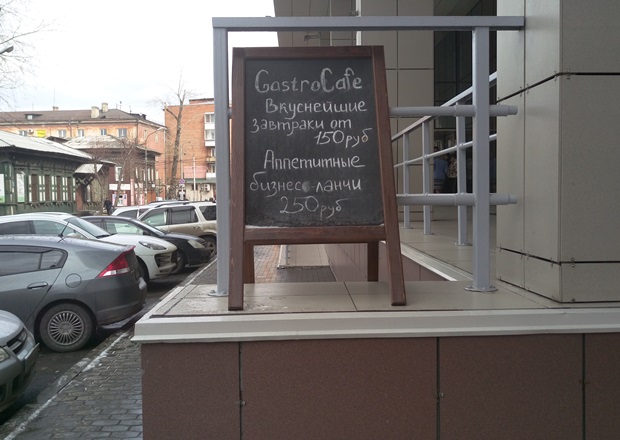 GastroCafe
Вкуснейшие
завтраки от
150 руб
Аппетитные
бизнес-ланчи
250 руб